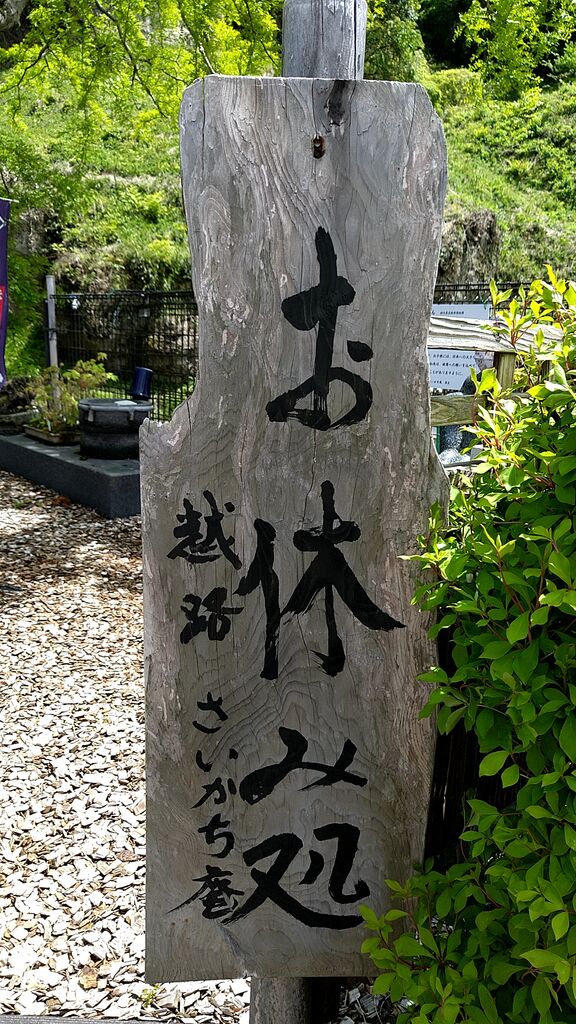 お休み処
越路
さいかち庵